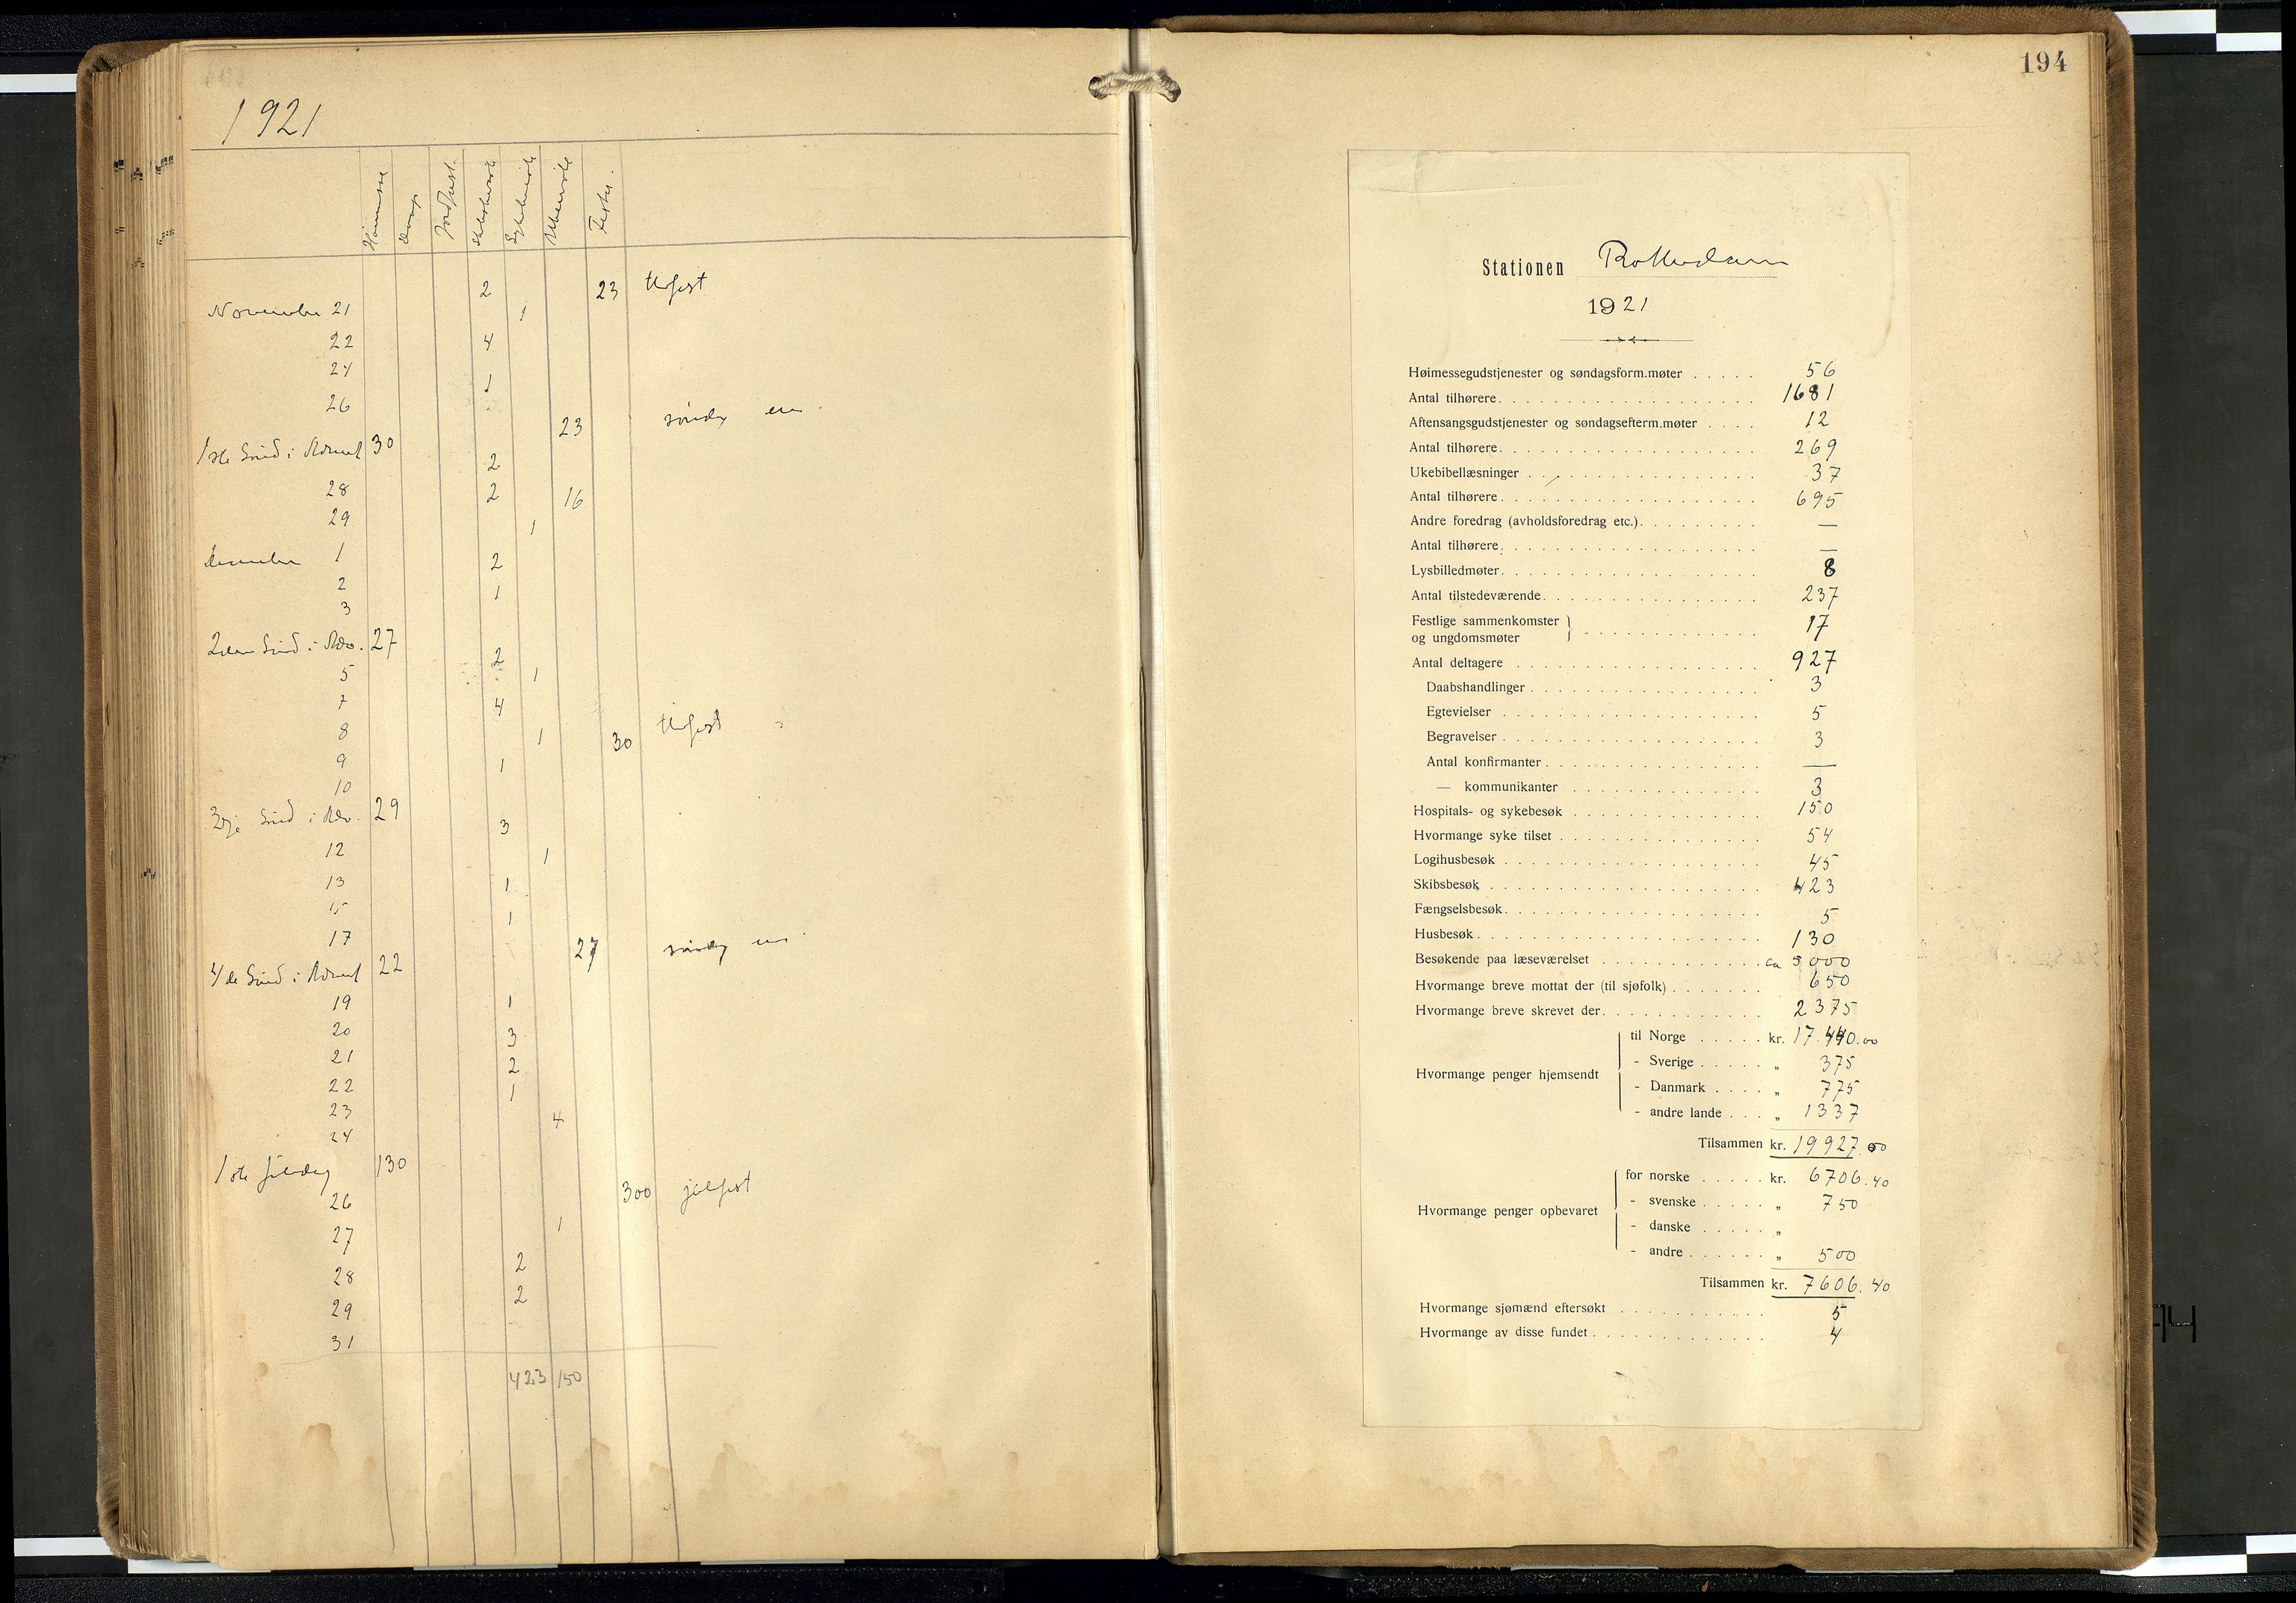 1921
Høimesse Daap Jordfest. Skibsbesøk Sykebesøk Ukemøte Fester.
2 23 tefest
November 21 1
22 4
24 1
26
23 søndag em.
1ste Sønd i Advent 30
2
28 2 16
29 1
December 1 2
2 1
3
2den Sønd i Adv. 27
2
5 1
7 4
8 1 30 tefest
9 1
10
3dje Sønd i Adv. 29
3
12 1
13 1
15 1
17
27 søndag em.
4de Sønd i Advent 22
19 1
20 3
21 2
22 1
23 4
24
1ste juledag 130
26 300 julefest
27 1
28 2
29 2
31
423 150
194
Stationen Rotterdam
1921
Høimessegudstjenester og søndagsform.møter 56
Antal tilhørere 1681
Aftensangsgudstjenester og søndagsefterm.møter 12
Antal tilhørere 269
Ukebibellæsninger 37
Antal tilhørere 695
Andre foredrag (avholdsforedrag etc.) —
Antal tilhørere —
Lysbilledmøter 8
Antal tilstedeværende 237
Festlige sammenkomster
og ungdomsmøter 17
Antal deltagere 927
Daabshandlinger 3
Egtevielser 5
Begravelser 3
Antal konfirmanter —
— kommunikanter 3
Hospitals- og sykebesøk 150
Hvormange syke tilset 54
Logihusbesøk 45
Skibsbesøk 423
Fængselsbesøk 5
Husbesøk 130
Besøkende paa læseværelset ca 5000
Hvormange breve mottat der (til sjøfolk) 650
Hvormange breve skrevet der 2375
Hvormange penger hjemsendt
til Norge kr. 17.440.00
- Sverige „ 375
- Danmark „ 775
- andre lande „ 1337
Tilsammen kr. 19927.00
Hvormange penger opbevaret
for norske kr. 6706.40
- svenske „ 750
- danske „
- andre „ 500
Tilsammen kr. 7606.40
Hvormange sjømænd eftersøkt 5
Hvormange av disse fundet 4